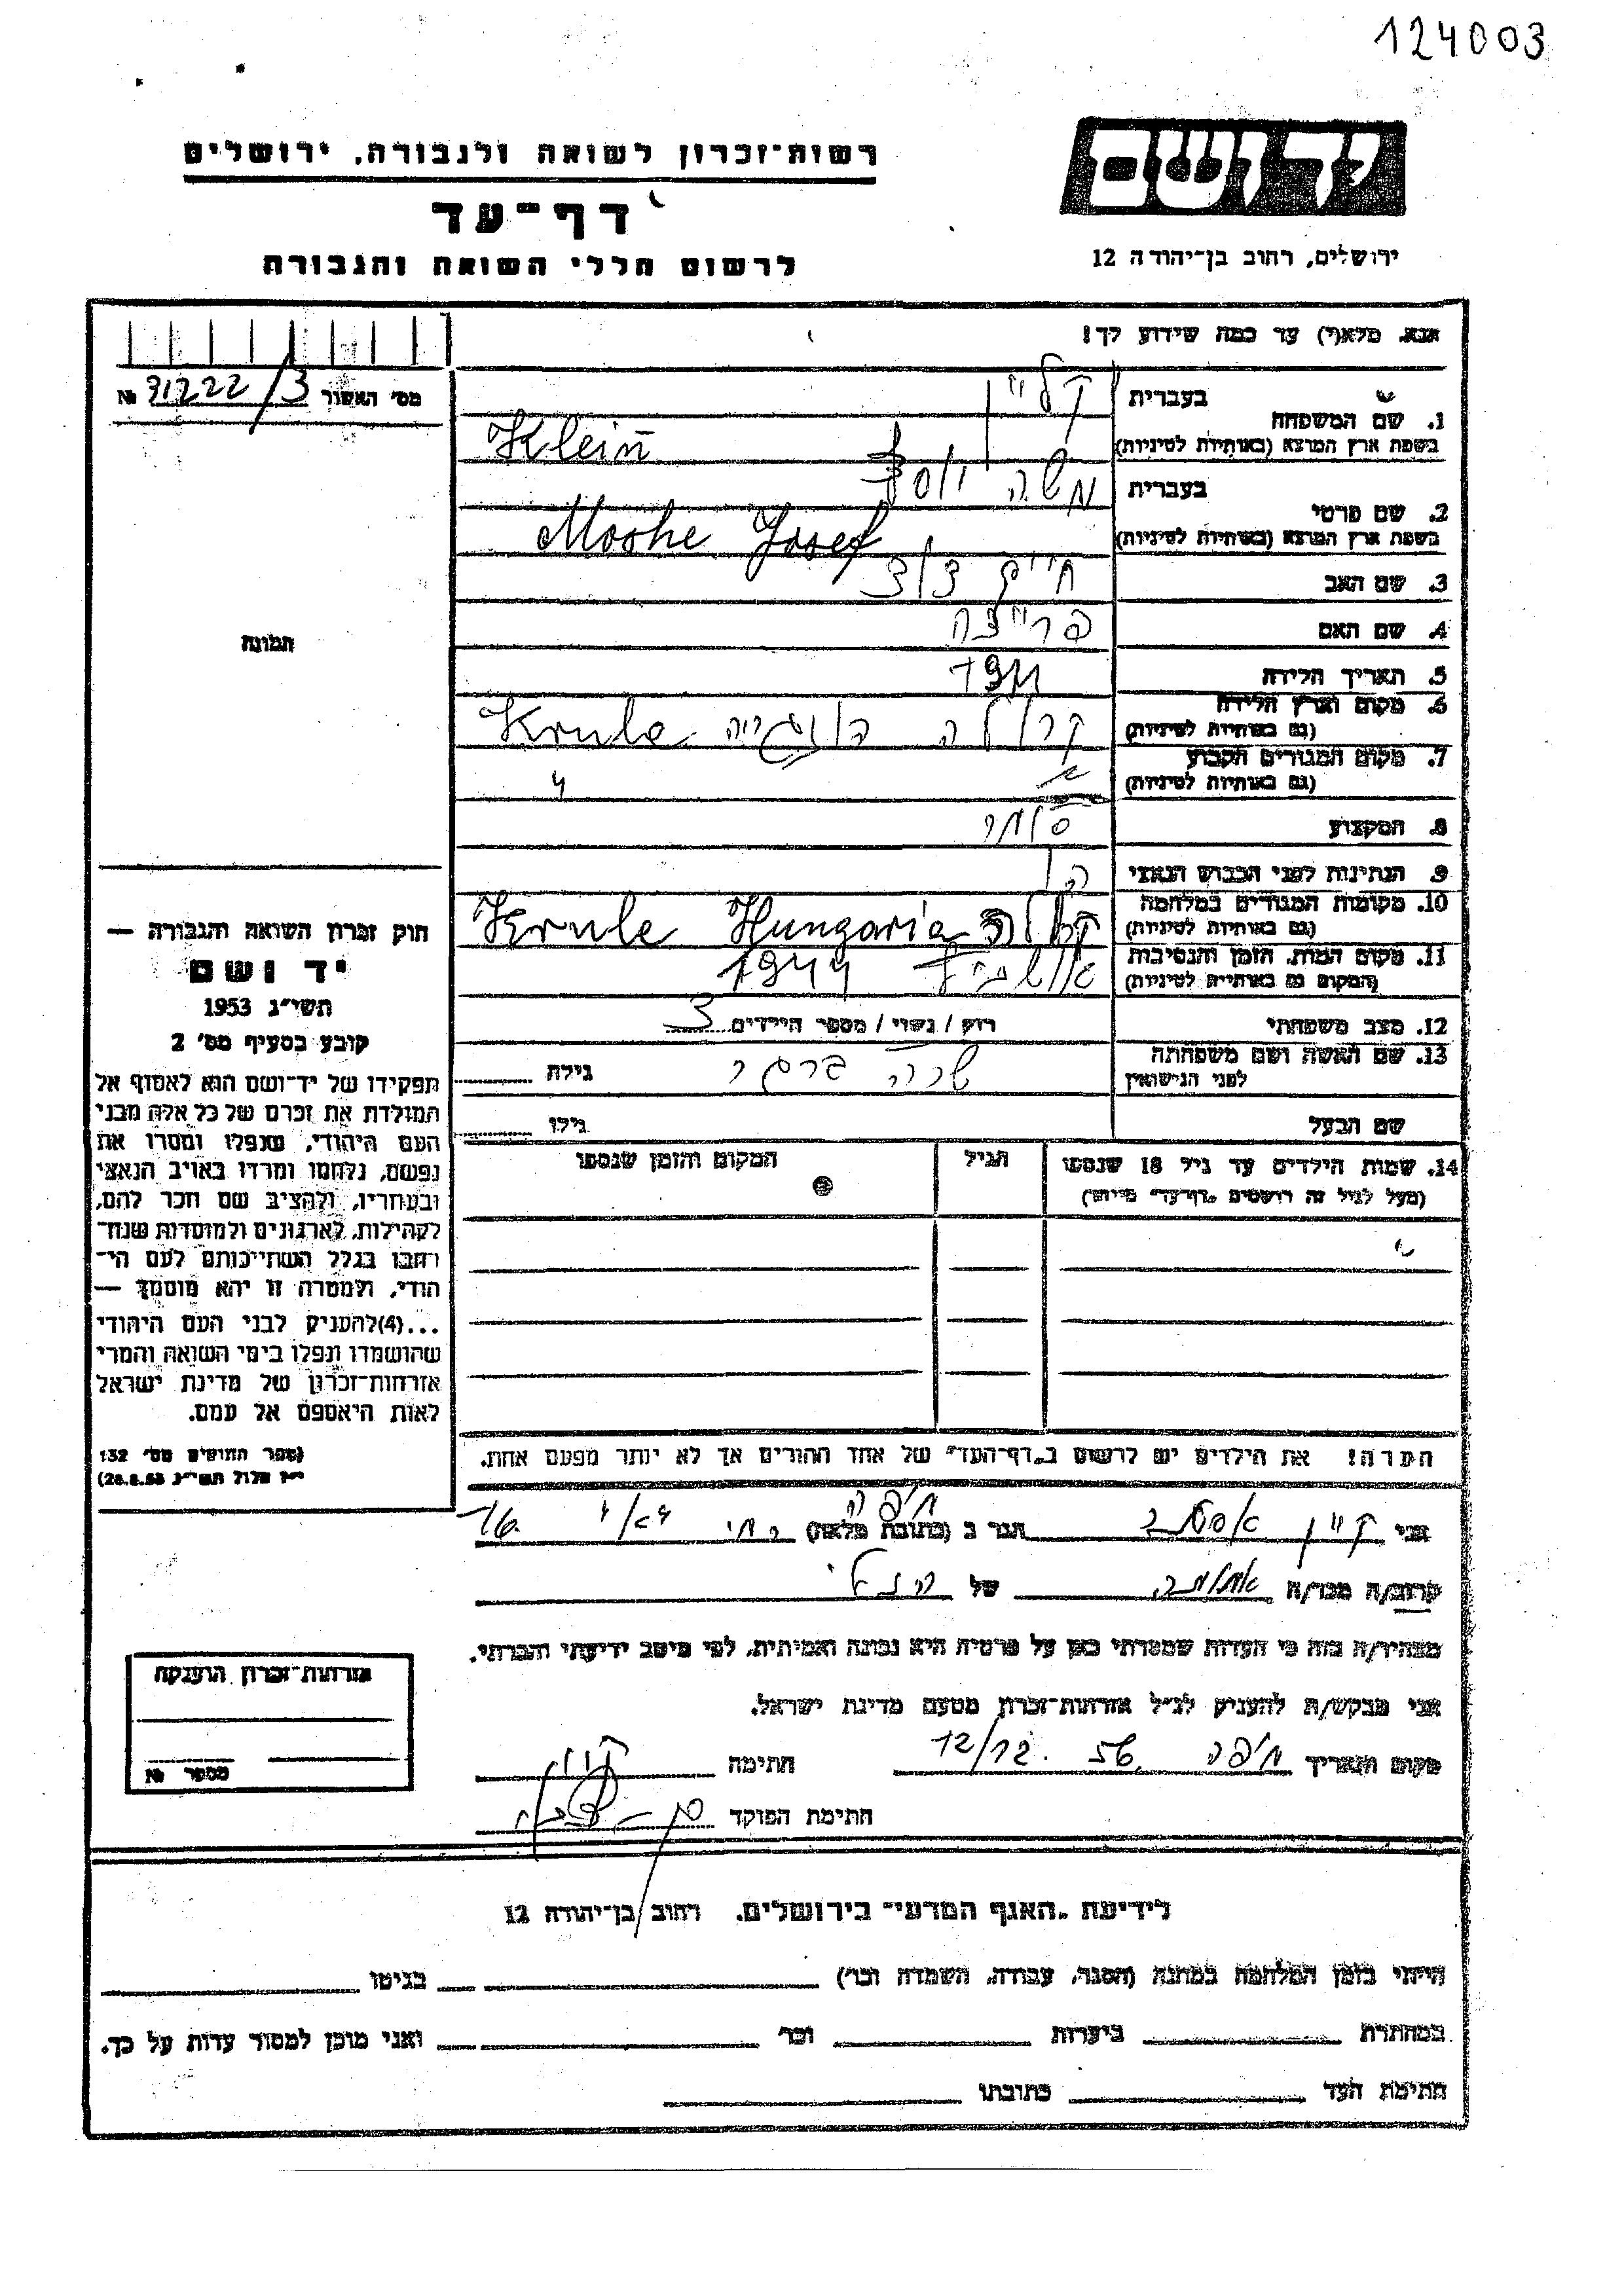 124003
יד ושם
רשות־זכרון לשואה ולגבורה, ירושלים
דף־עד
לרשום חללי השואה והגבורה
ירושלים, רחוב בן־יהודה 12
אנא, מלא(י) עד כמה שידוע לך!
מס' האשור 91222/3 №
1. שם המשפחה
בעברית קליין
בשפת ארץ המוצא (באותיות לטיניות) Klein
2. שם פרטי
בעברית משה יוסף
בשפת ארץ המוצא (באותיות לטיניות) Moshe Josef
3. שם האב חיים
4. שם האם
5. תאריך הלידה 1911
6. מקום וארץ הלידה
(גם באותיות לטיניות) Krule
7. מקום המגורים הקבוע
(גם באותיות לטיניות)
8. המקצוע סוחר
9. הנתינות לפני הכבוש הנאצי
10. מקומות המגורים במלחמה
(גם באותיות לטיניות) Krule Hungaria
11. מקום המות, הזמן והנסיבות
(המקום גם באותיות לטיניות) 1944
12. מצב משפחתי רוק / נשוי / מספר הילדים 3
13. שם האשה ושם משפחתה
לפני הנישואין שרה ברגר גילה
שם הבעל גילו
14. שמות הילדים עד גיל 18 שנספו
(מעל לגיל זה רושמים „דף־עד" מיוחד)
הגיל
המקום והזמן שנספו
הערה! את הילדים יש לרשום ב„דף־העד" של אחד ההורים אך לא יותר מפעם אחת.
תמונה
חוק זכרון השואה והגבורה —
יד ושם
תשי"ג 1953
קובע בסעיף מס' 2
תפקידו של יד־ושם הוא לאסוף אל
המולדת את זכרם של כל אלה מבני
העם היהודי, שנפלו ומסרו את
נפשם, נלחמו ומרדו באויב הנאצי
ובעוזריו, ולהציב שם וזכר להם,
לקהילות, לארגונים ולמוסדות שנח־
רבו בגלל השתייכותם לעם הי־
הודי, ולמטרה זו יהא מוסמך —
...(4)להעניק לבני העם היהודי
שהושמדו ונפלו בימי השואה והמרי
אזרחות־זכרון של מדינת ישראל
לאות היאספם אל עמם.
(ספר החוקים מס' 132
י"ז אלול תשי"ג 28.8.53)
אני קליין אסתר הגר ב (כתובת מלאה) חיפה 16
קרוב/ה מכר/ה של הנ"ל
מצהיר/ה בזה כי העדות שמסרתי כאן על פרטיה היא נכונה ואמיתית, לפי מיטב ידיעתי והכרתי.
אני מבקש/ת להעניק לנ"ל אזרחות־זכרון מטעם מדינת ישראל.
מקום ותאריך חיפה 12/12. 56 חתימה
חתימת הפוקד
אזרחות־זכרון הוענקה
מספר №
לידיעת „האגף המדעי" בירושלים, רחוב בן־יהודה 12
הייתי בזמן המלחמה במחנה (הסגר, עבודה, השמדה וכו') בגיטו
במחתרת ביערות וכו' ואני מוכן למסור עדות על כך.
חתימת העד כתובתו